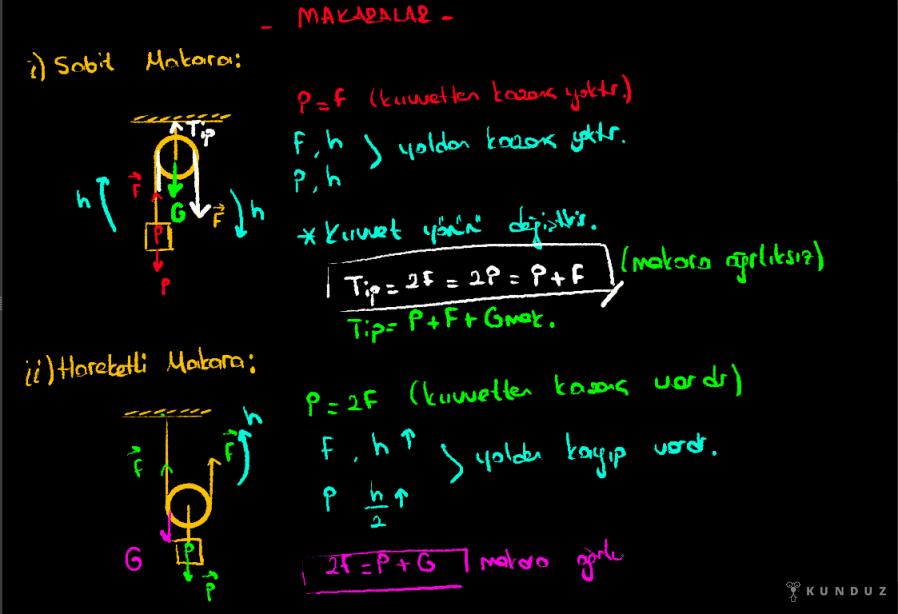 - MAKARALAR -
i) Sabit Makara:
P = F (kuvvetten kazanç yoktur.)
F, h
P, h
yoldan kazanç yoktur.
* Kuvvet yönünü değiştirir.
Tip = 2F = 2P = P + F (makara ağırlıksız)
Tip = P + F + Gmak.
Tip
h
F
G
F
h
P
P
ii) Hareketli Makara:
P = 2F (kuvvetten kazanç vardır)
F, h ↑
P h/2 ↑
yoldan kayıp vardır.
2F = P + G makara
h
F
F
G
P
P
KUNDUZ